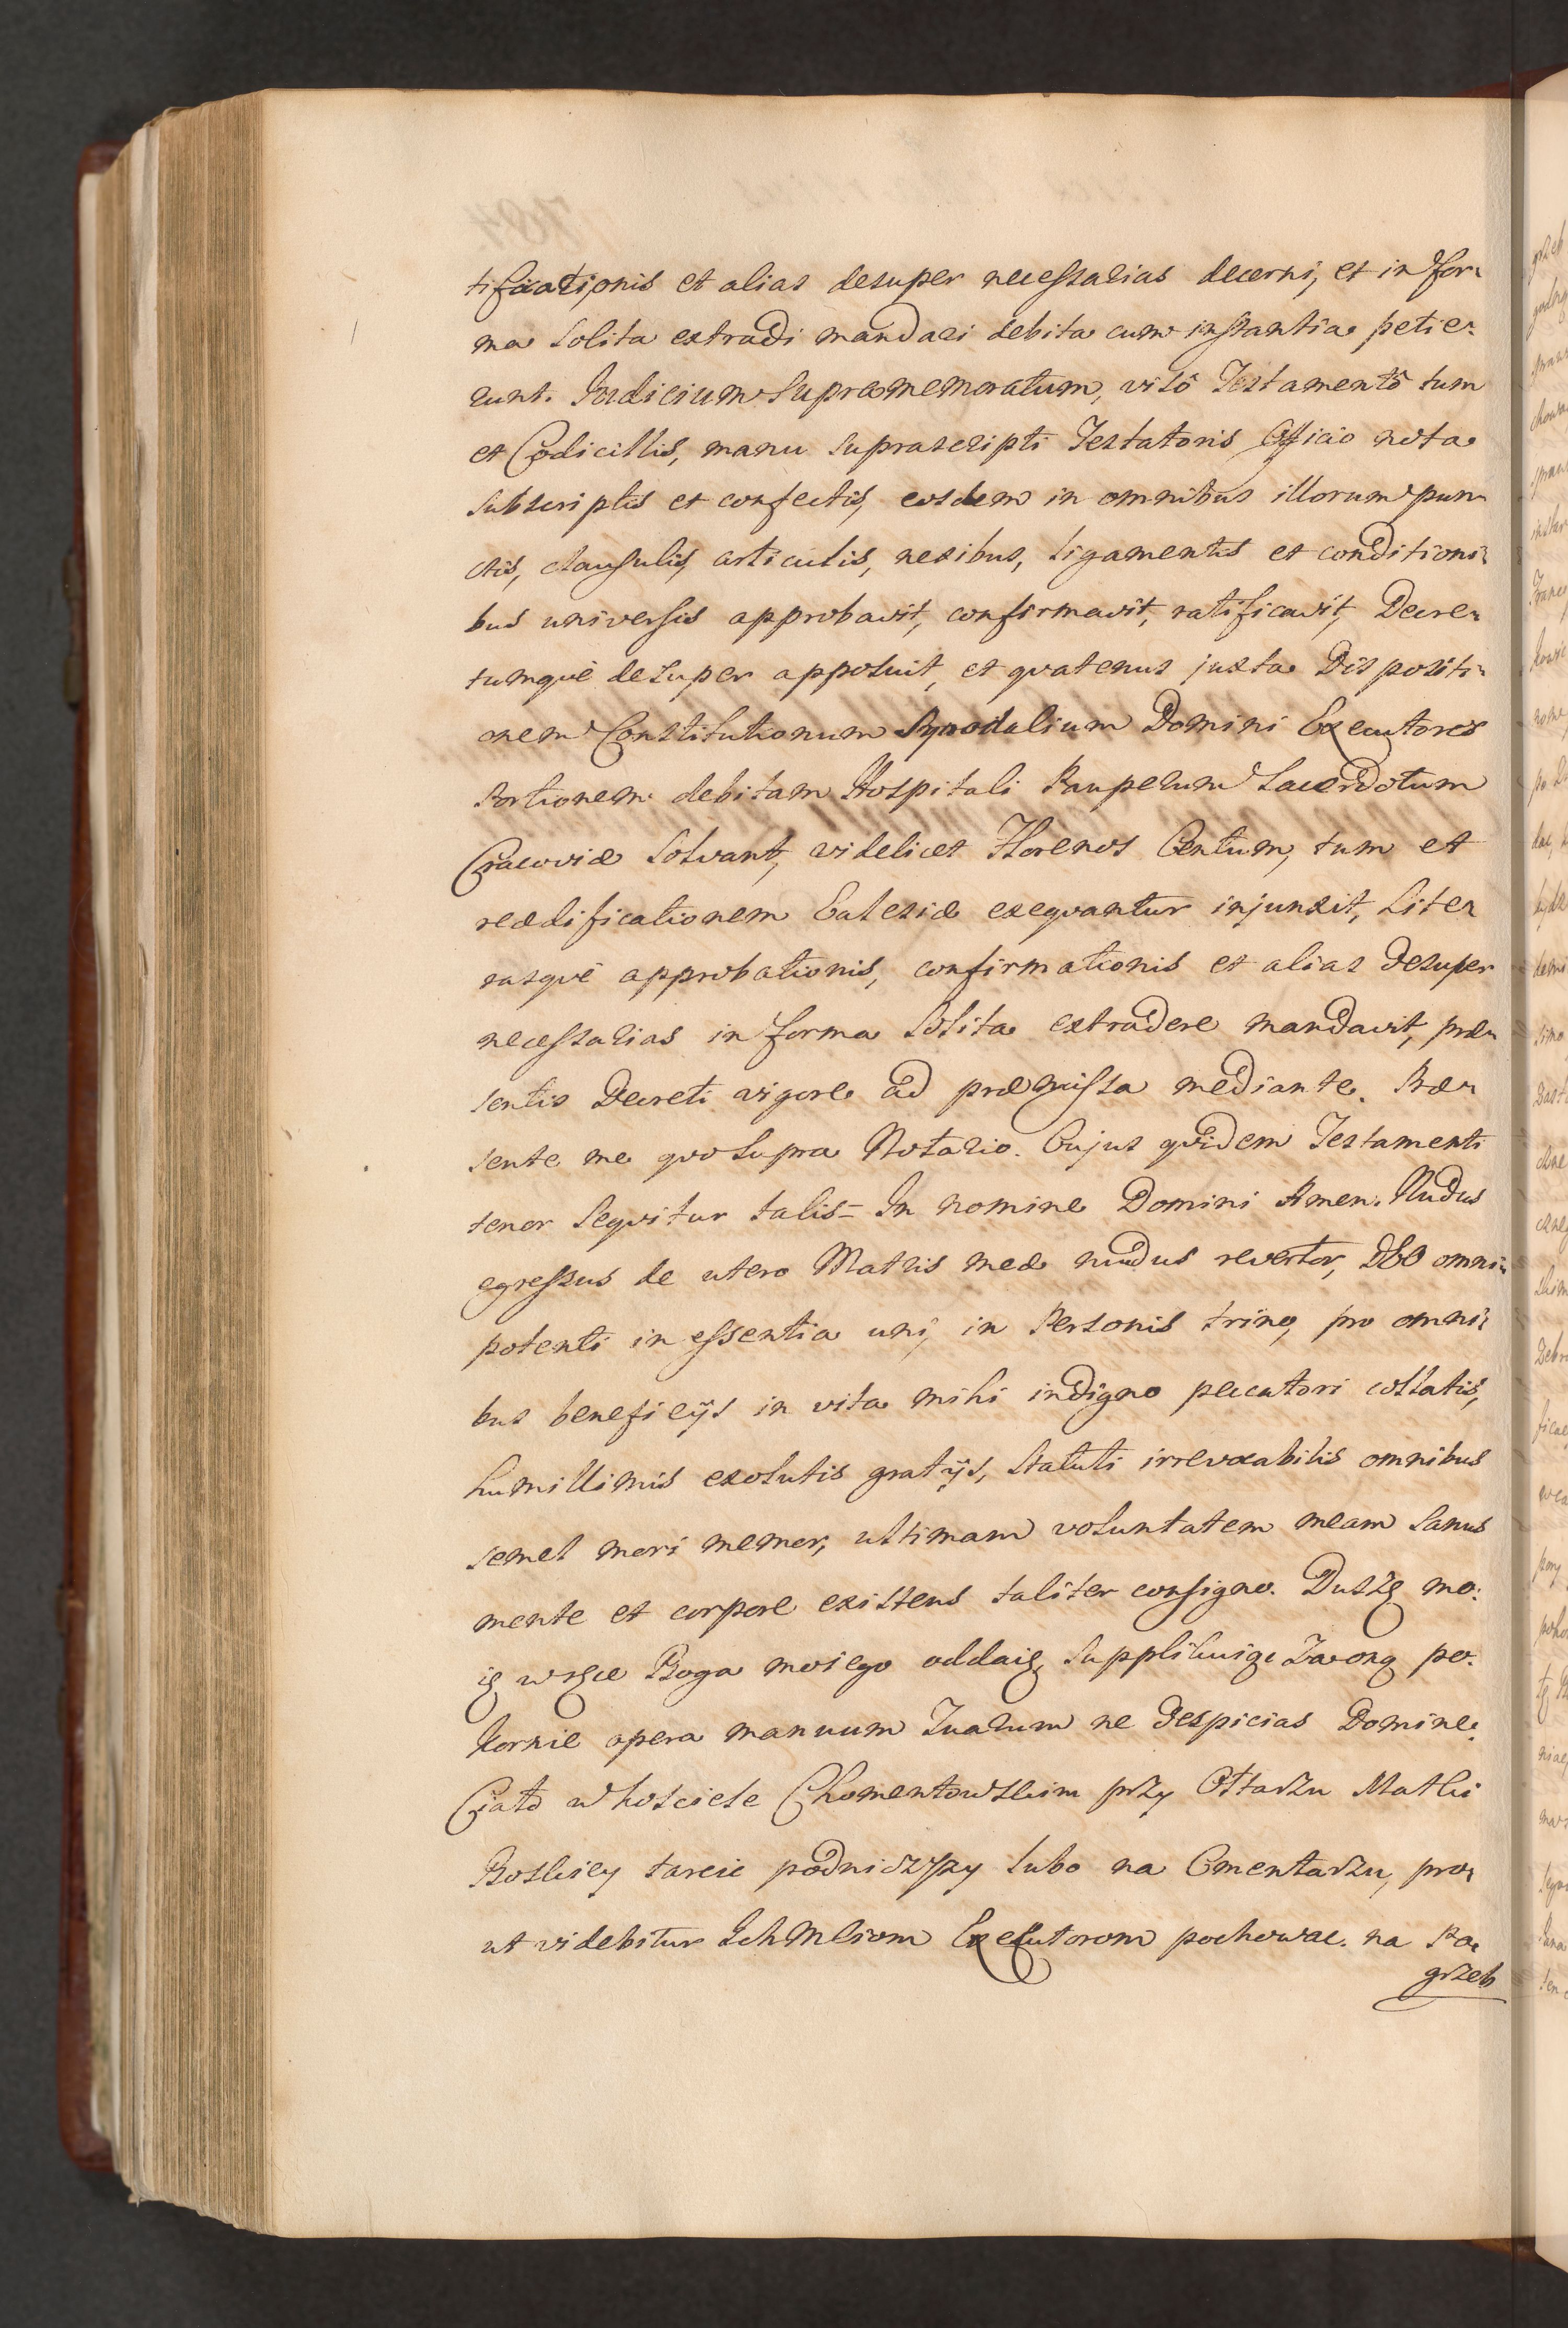 tificationis et alias desuper necessarias decerni, et in for-
ma solita extradi mandari debita cum instantia petie-
runt. Judicium supramemoratum, visô Testamentô tum
et Codicillis, manu suprascripti Testatoris Officio nota
subscriptis et confectis, eosdem in omnibus illorum pun-
ctis, clausulis, articulis, nexibus, ligamentis et conditioni-
bus universis approbavit, confirmavit, ratificavit, Decre-
tumque desuper apposuit, et qvatenus juxta Dispositi-
onem Constitutionum Synodalium Domini Executores
Portionem debitam Hospitali Pauperum Sacerdotum
Cracoviæ solvant, videlicet Florenos Centum, tum et
reædificationem Ecclesiæ exeqvantur injunxit, Lite-
rasqve approbationis, confirmationis et alias desuper
necessarias in forma solita extradere mandavit, præ-
sentis Decreti vigore ad præmissa mediante. Præ-
sente me qvo supra Notario. Cujus qvidem Testamenti
tenor seqvitur talis = In nomine Domini Amen. Nudus
egressus de utero Matris meæ nudus revertor, DEO omni-
potenti in essentia uni, in Personis trino, pro omni-
bus beneficijs in vita mihi indigno peccatori collatis,
humillimis exolutis gratijs, statuti irrevocabilis omnibus
semel mori memor, ultimam voluntatem meam sanus
mente et corpore existens taliter consigno. Duszę mo-
ię w ręce Boga moiego oddaię, supplikuiąc za oną po-
kornie opera manuum Tuarum ne despicias Domine.
Ciało w kosciele Chomentowskim przy Ołtarzu Matki
Boskiey tarcie podniczypy lubo na Cmentarzu, pro-
ut videbitur Ich Mciom Exekutorom pochować. na Po-
grzeb